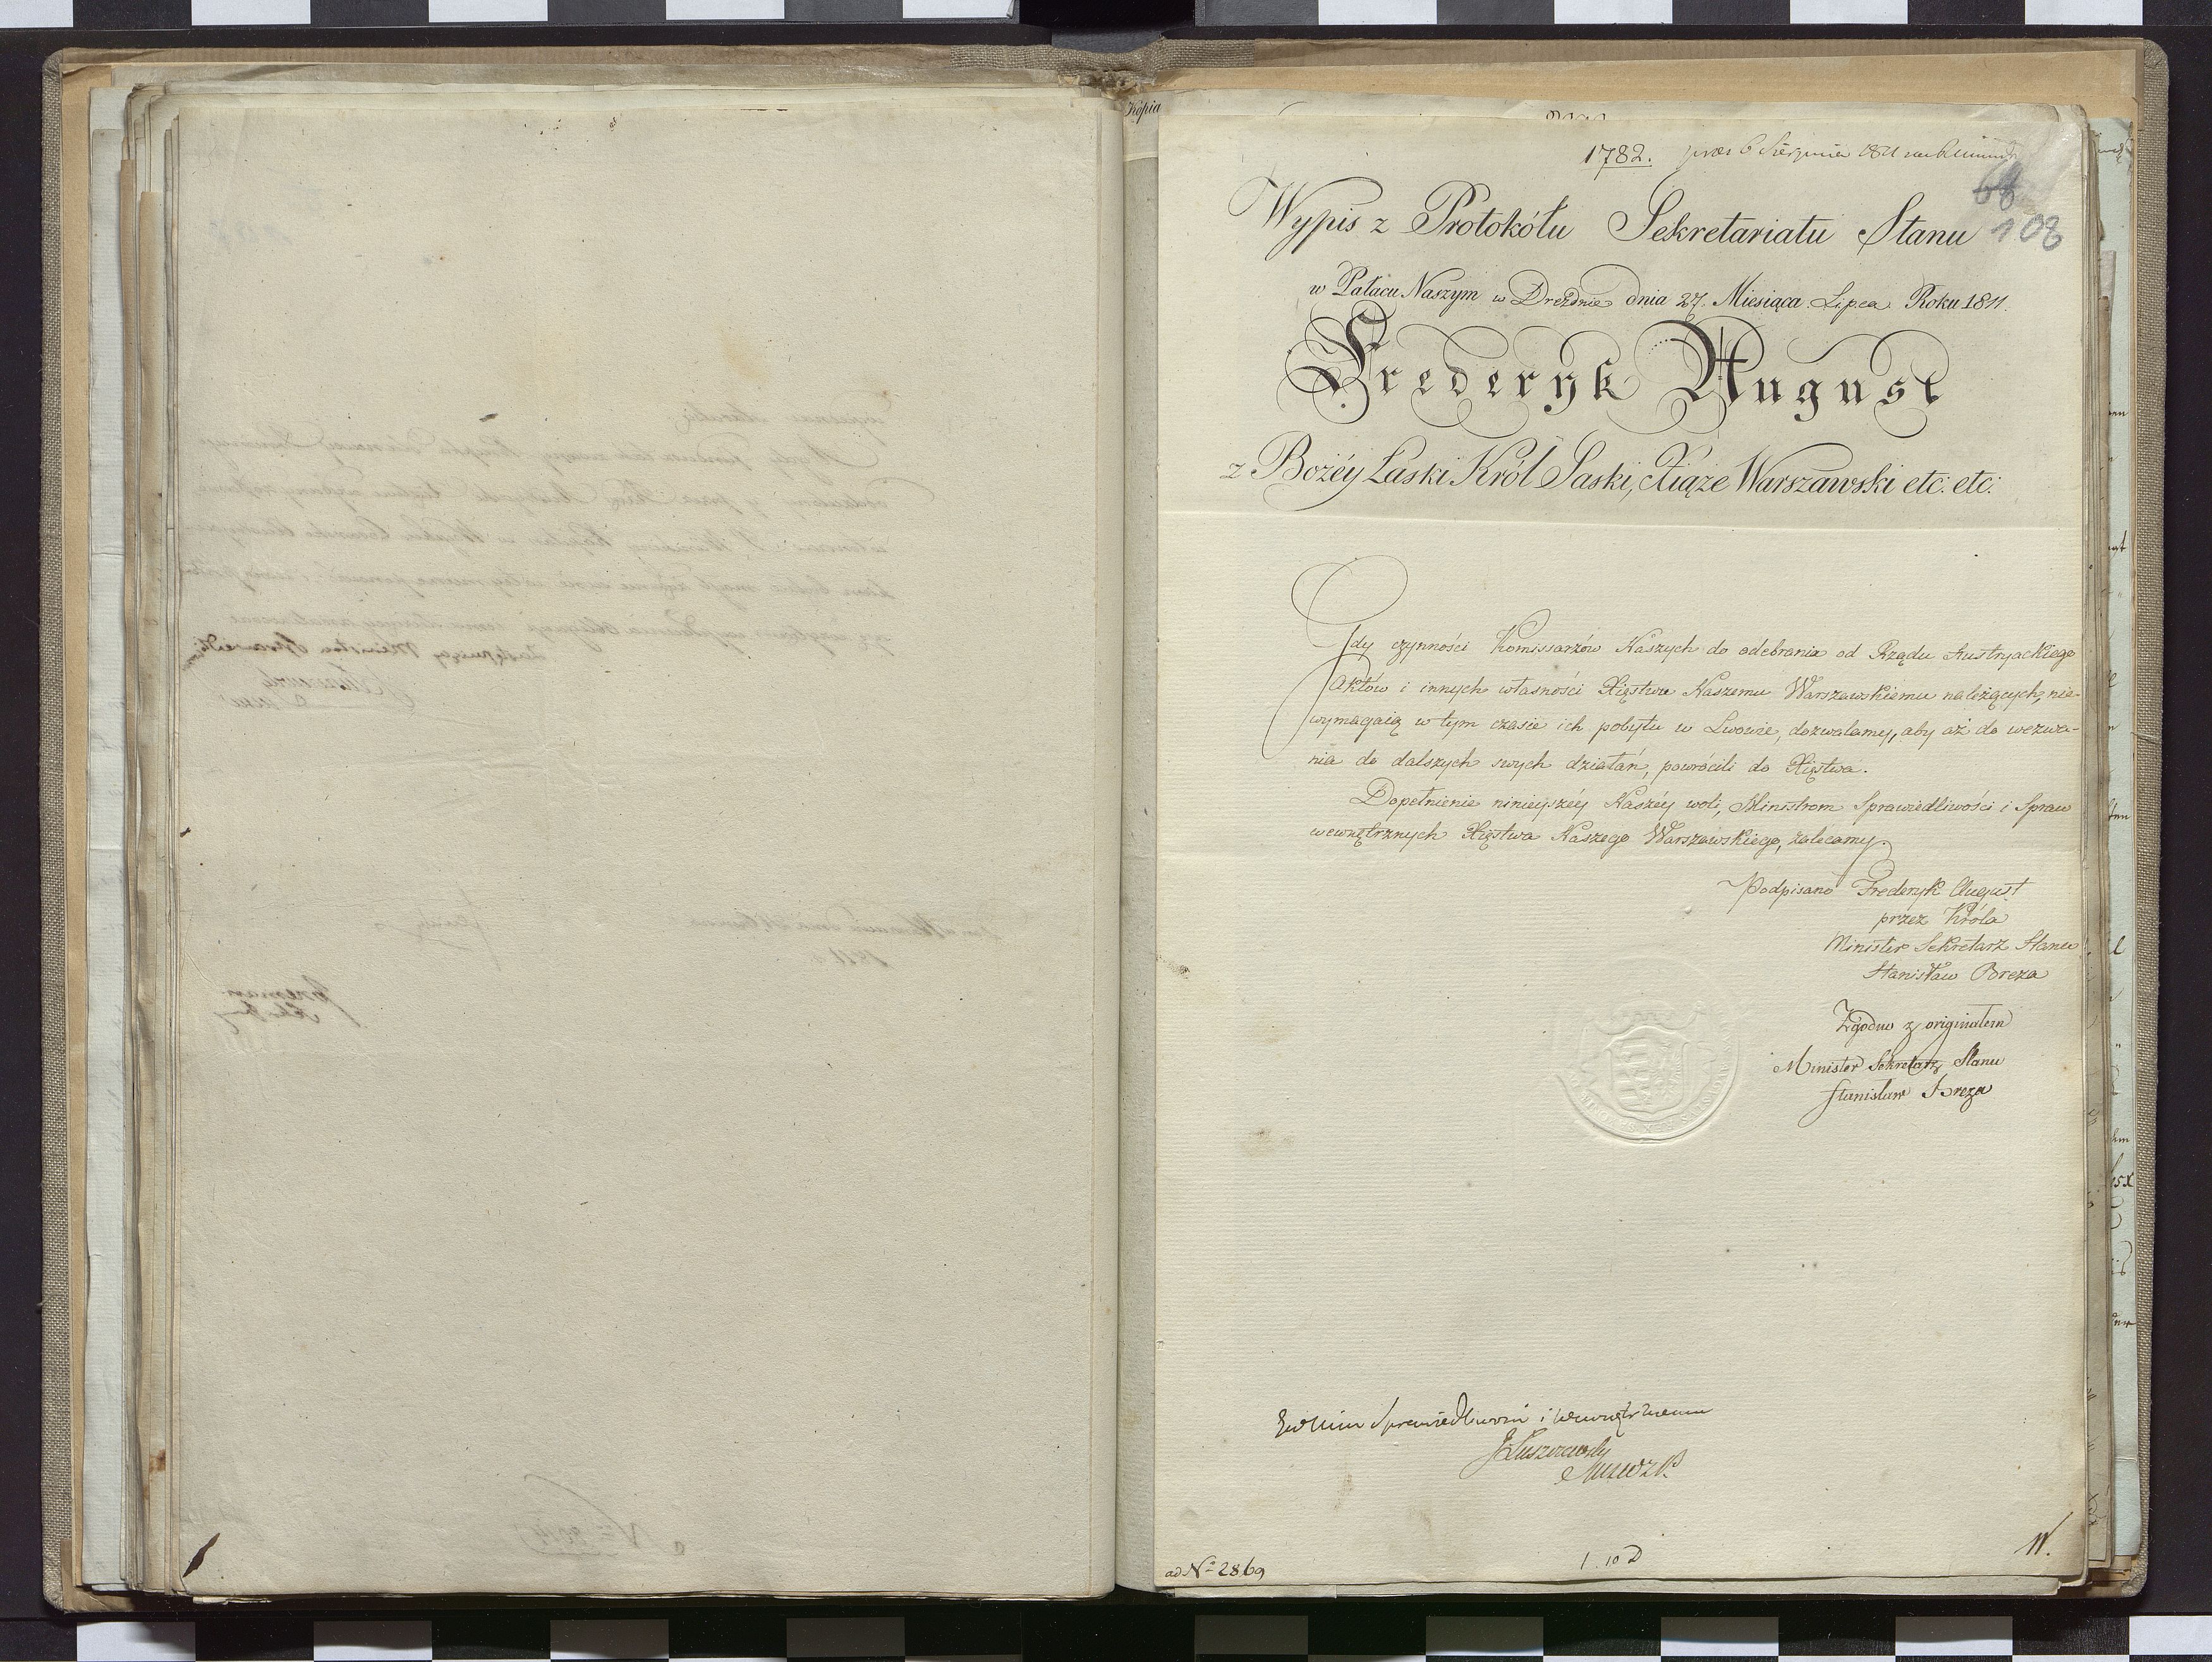 Kopia
1782. pras 6 Sierpnia 1811
68
108
Wypis z Protokółu Sekretariatu Stanu
w Pałacu Naszym w Dreźnie dnia 27. Miesiąca Lipca Roku 1811.
Frederyk August
z Bożéy Łaski Król Saski, Xiąże Warszawski etc: etc:
Gdy czynności Komissarzów Naszych do odebrania od Rządu Austryackiego
Aktów i innych własności Xięstwu Naszemu Warszawskiemu należących, nie-
wymagaią w tym czasie ich pobytu w Lwowie, dozwalamy, aby aż do wezwa-
nia do dalszych swych działań, powrócili do Xięstwa.
Dopełnienie ninieyszéy Naszéy woli, Ministrom Sprawiedliwości i Spraw
wewnętrznych Xięstwa Naszego Warszawskiego, zalecamy.
Podpisano Frederyk August
przez Króla
Minister Sekretarz Stanu
Stanisław Breza
Zgodno z originałem
Minister Sekretarz Stanu
Stanisław Breza
Sprawiedliwości i Wewnętrznemu
Łuszczewsky
ad No 2869
1. 10 D
11.